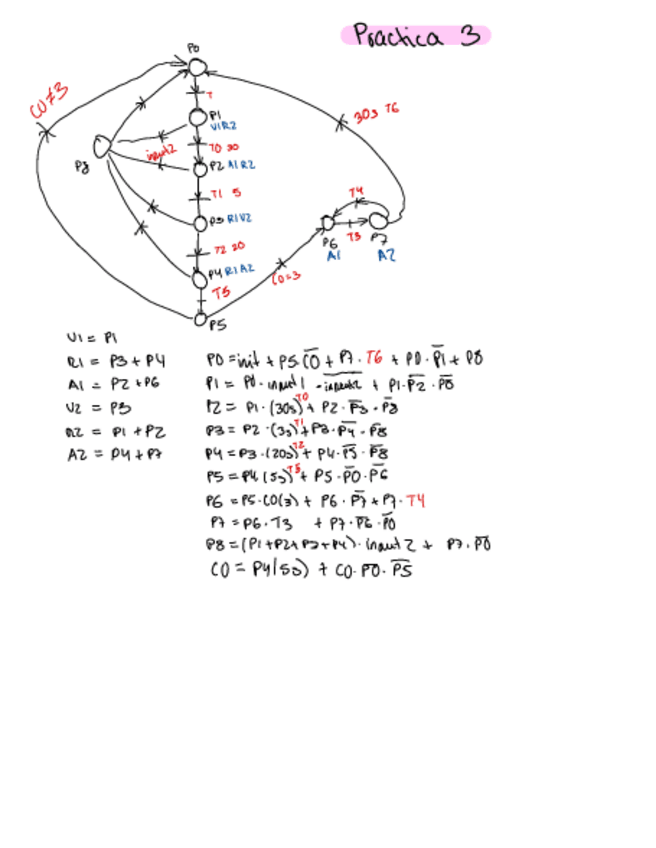 Practica 3
P0
T
C0≠3
P1
V1R2
input2
T0 30
P8
P2 A1R2
T1 5
P3 R1V2
T2 20
P4 R1A2
T5
P5
C0=3
30s T6
T4
T3
P6
A1
P7
A2
V1 = P1
R1 = P3 + P4
A1 = P2 + P6
V2 = P3
R2 = P1 + P2
A2 = P4 + P7
P0 = init + P5·C̅0̅ + P7·T6 + P0·P̅1̅ + P8
P1 = P0·input1·i̅n̅p̅u̅t̅2̅ + P1·P̅2̅·P̅8̅
P2 = P1·(30s)T0 + P2·P̅3̅·P̅8̅
P3 = P2·(3s)T1 + P3·P̅4̅·P̅8̅
P4 = P3·(20s)T2 + P4·P̅5̅·P̅8̅
P5 = P4(5s)T5 + P5·P̅0̅·P̅6̅
P6 = P5·C0(3) + P6·P̅7̅ + P7·T4
P7 = P6·T3 + P7·P̅6̅·P̅0̅
P8 = (P1+P2+P3+P4)·input2 + P7·P̅0̅
C0 = P4(5s) + C0·P̅0̅·P̅5̅